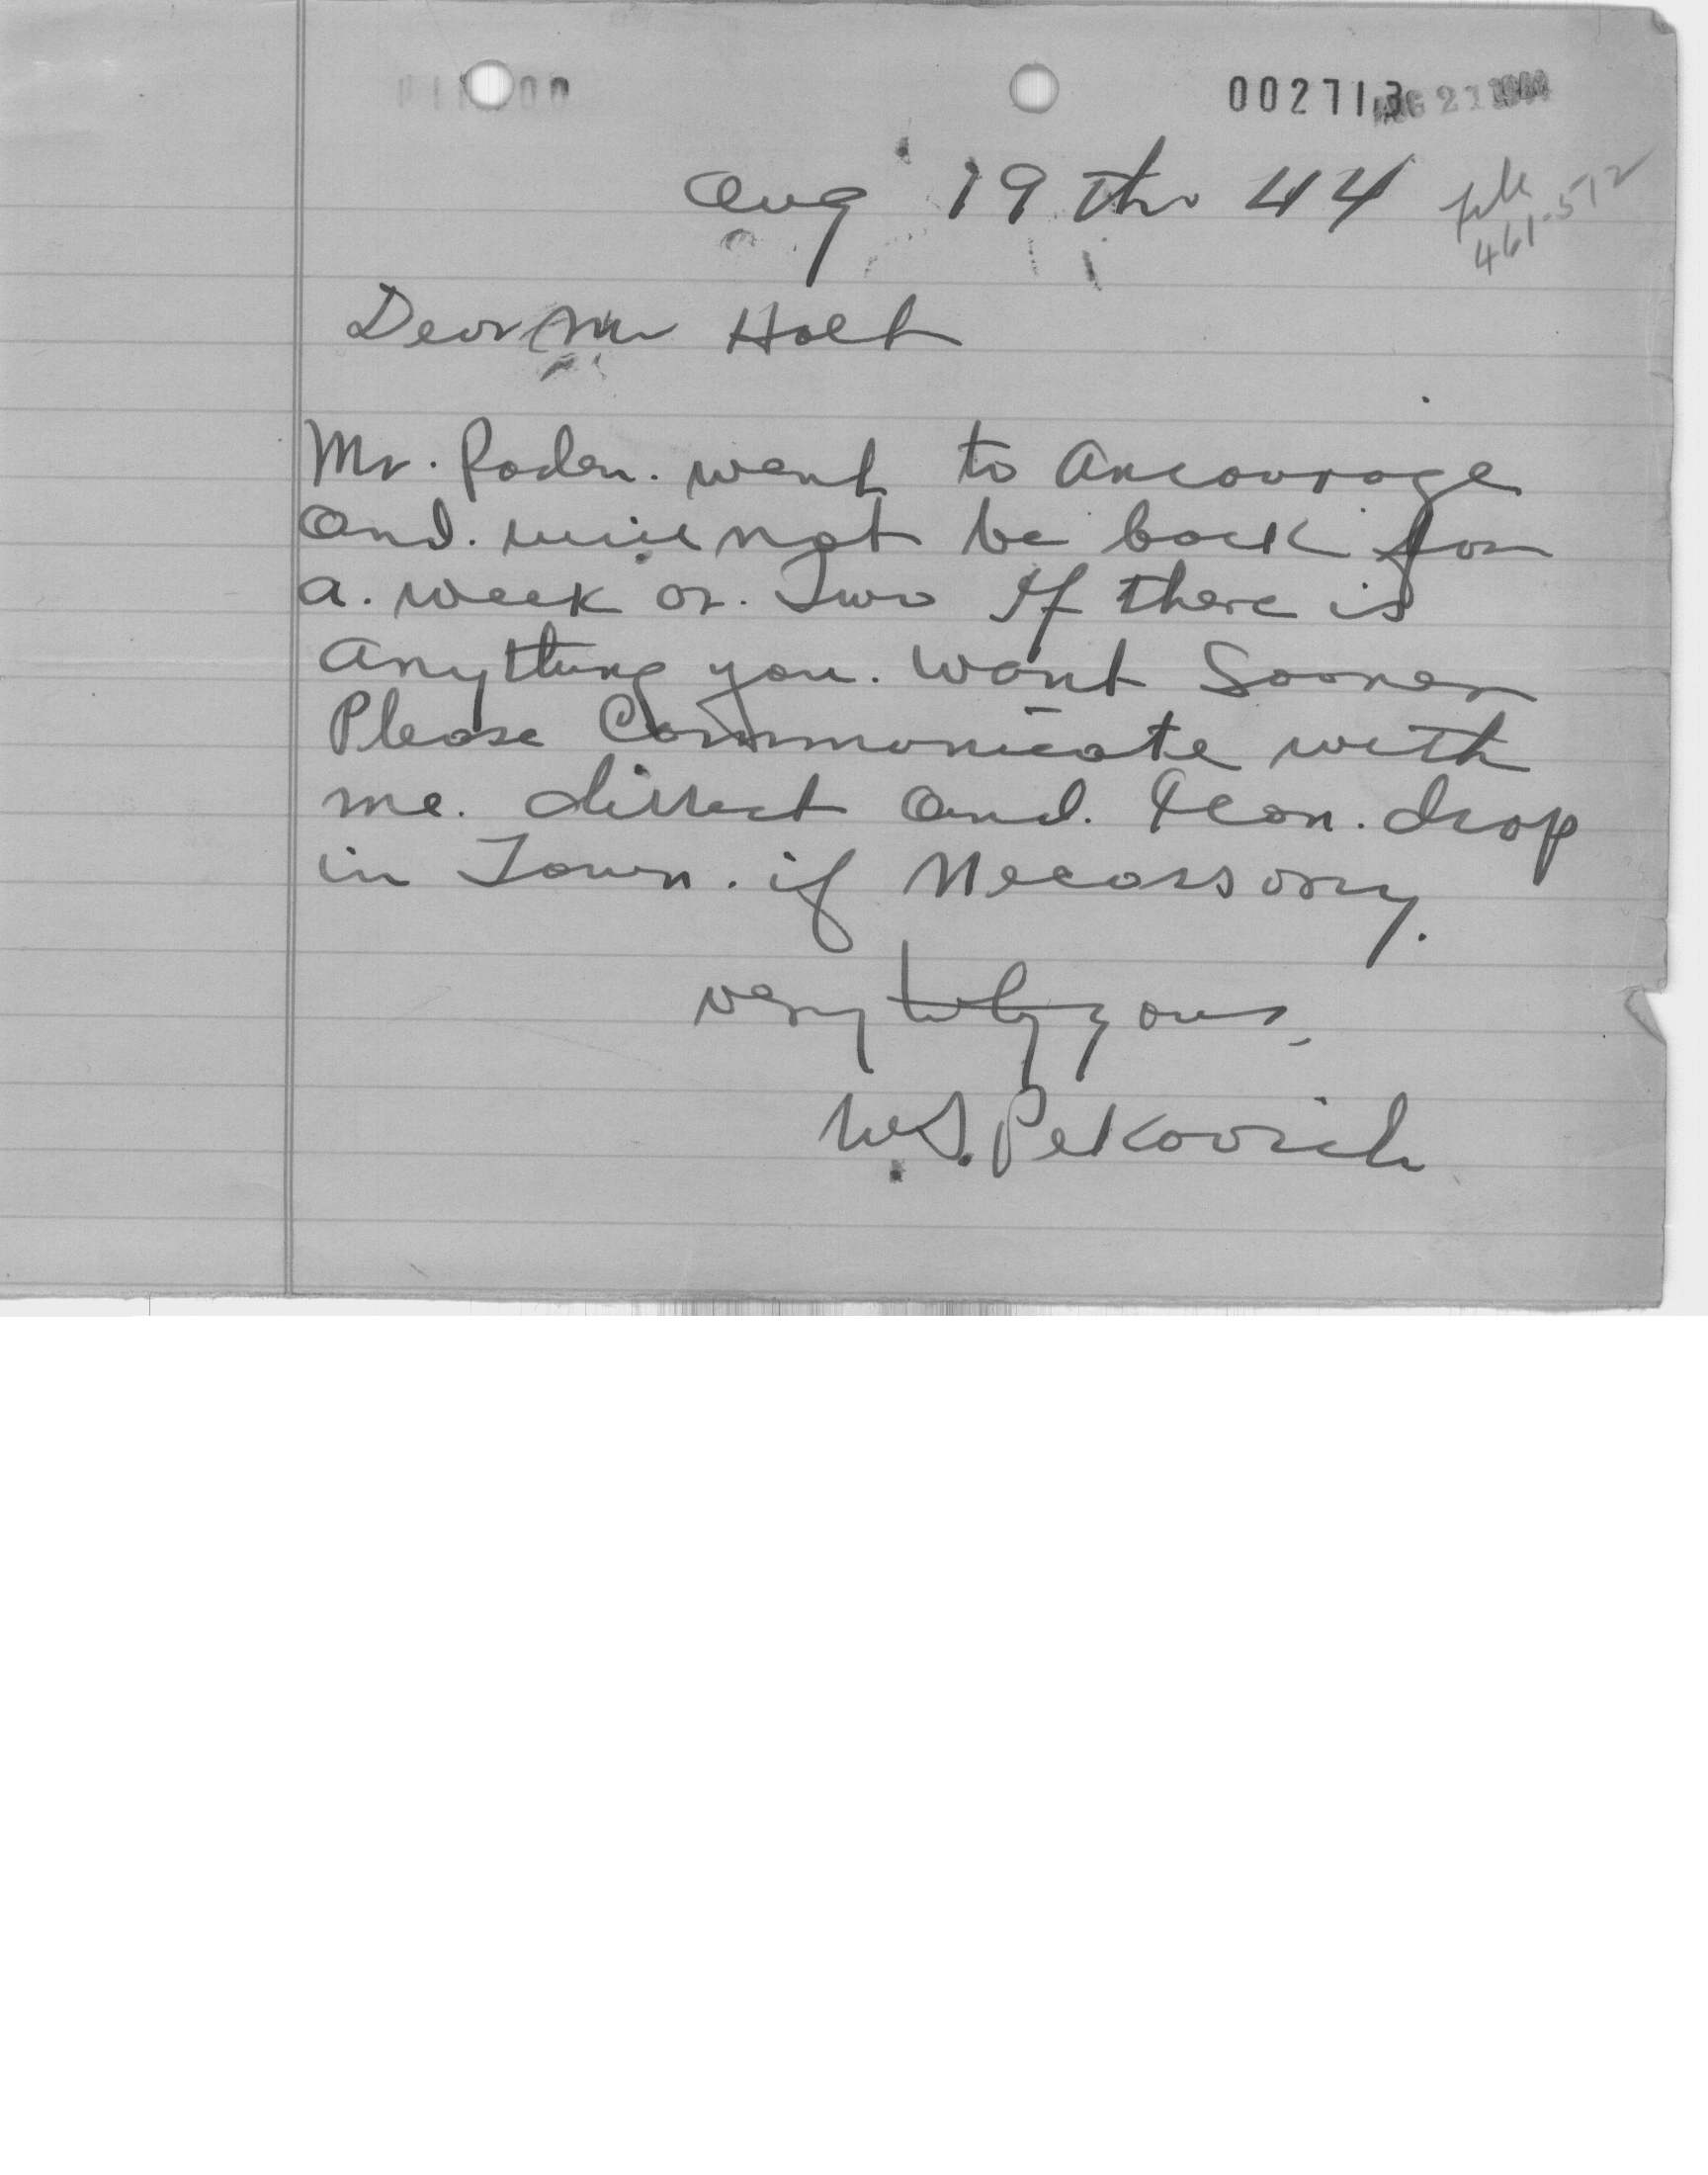 002713 AUG 21 1944
Aug 19 th 44
file
461-572
Dear Mr Holt
Mr. Roden. went to Ancourage
And. will not be back for
a. week or. Two If there is
Anything you. want Sooner
Please Communicate with
me. dirrect And. I can. drop
in Town. if Necassary.
very truly yours,
W.S. Pekovich